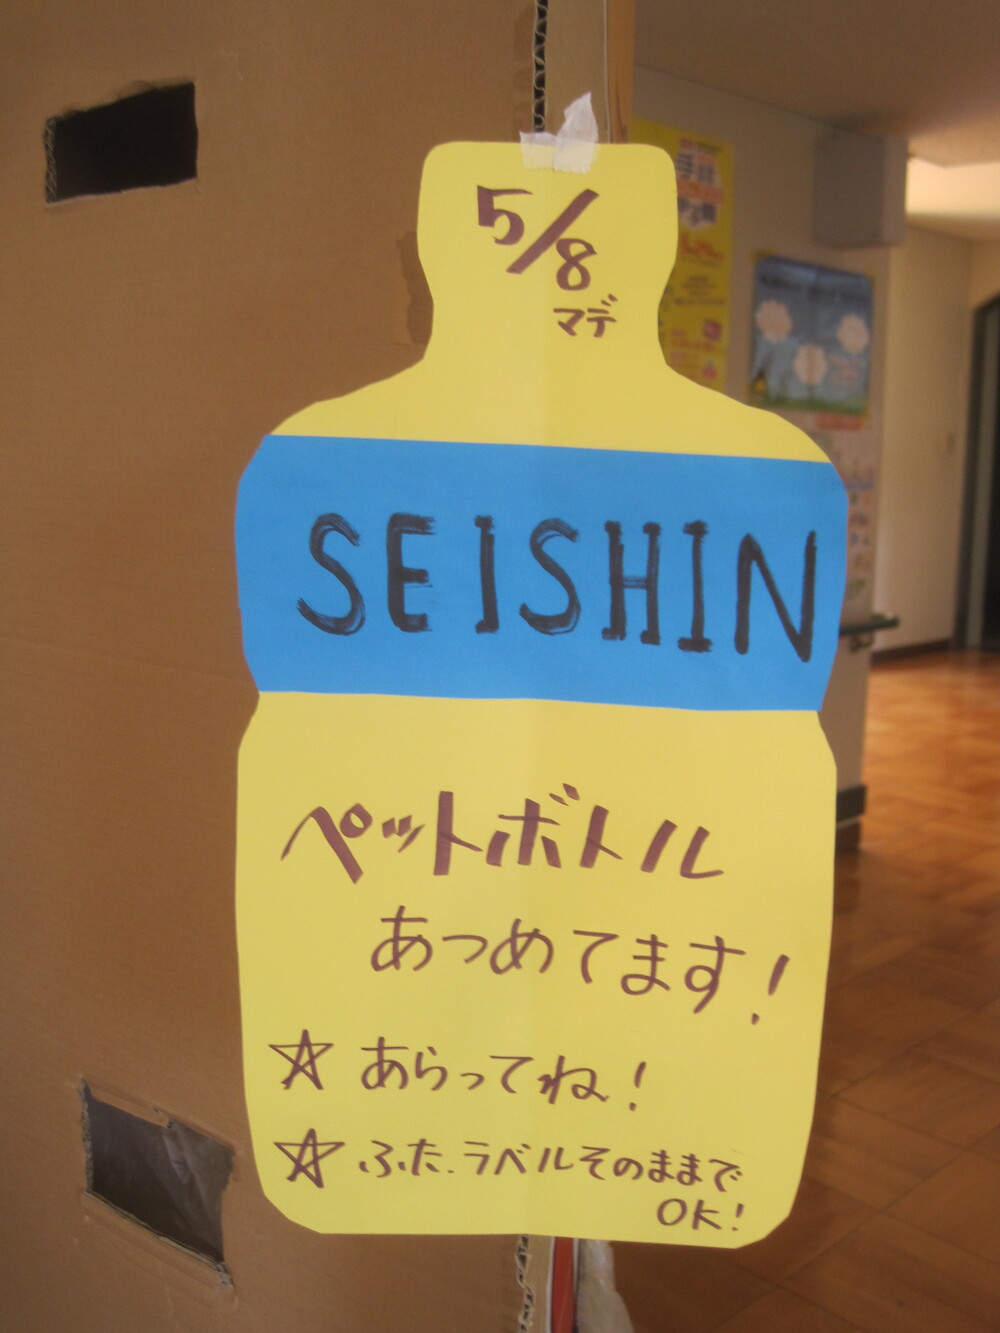 5/8
マデ
SEISHIN
ペットボトル
あつめてます!
☆ あらってね!
☆ ふた.ラベルそのままで
OK!